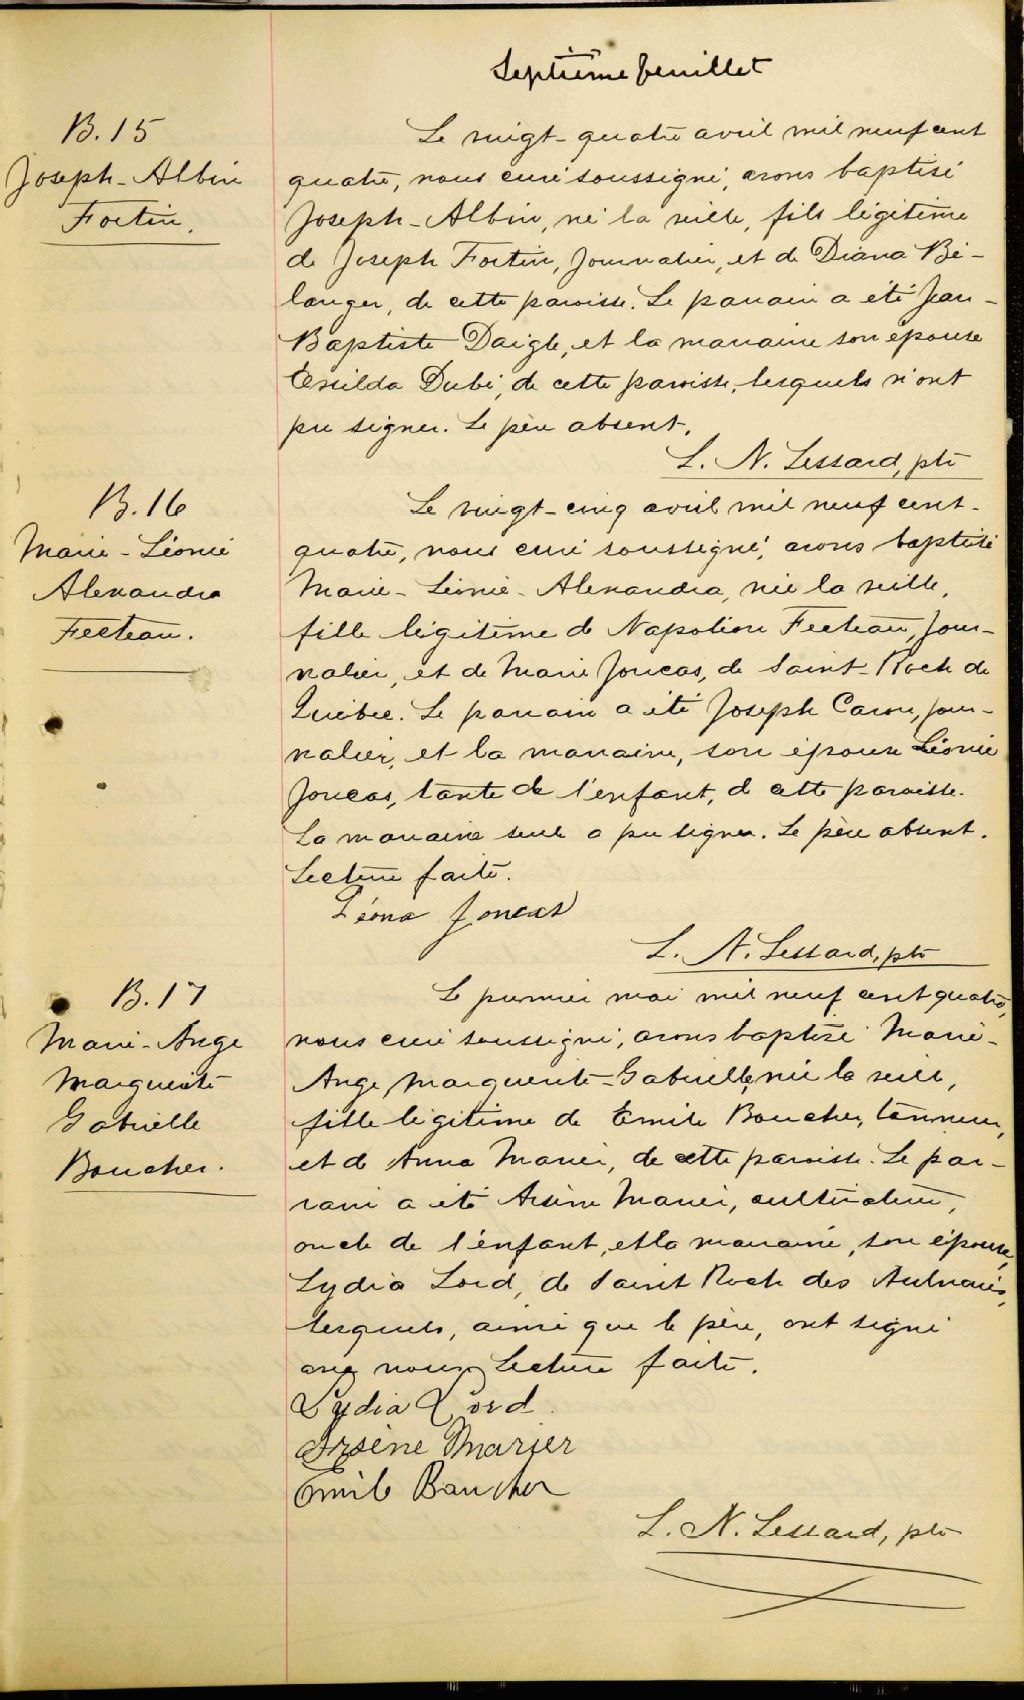 Septième feuillet
B. 15
Joseph-Albin
Fortin.
Le vingt-quatre avril mil neuf cent
quatre, nous curé soussigné, avons baptisé
Joseph-Albin, né la veille, fils légitime
de Joseph Fortin, journalier, et de Diana Bé-
langer, de cette paroisse. Le parrain a été Jean-
Baptiste Daigle, et la marraine son épouse
Exilda Dubé, de cette paroisse, lesquels n'ont
pu signer. Le père absent.
L. N. Lessard, ptre
B. 16
Marie-Léonie
Alexandra
Fecteau.
Le vingt-cinq avril mil neuf cent-
quatre, nous curé soussigné, avons baptisé
Marie-Léonie-Alexandra, née la veille,
fille légitime de Napoléon Fecteau, jour-
nalier, et de Marie Joncas, de Saint-Roch de
Québec. Le parrain a été Joseph Caron, jour-
nalier, et la marraine, son épouse Léonie
Joncas, tante de l'enfant, de cette paroisse.
La marraine seule a pu signer. Le père absent.
Lecture faite.
Léona Joncas
L. N. Lessard, ptre
B. 17
Marie-Ange
Marguerite
Gabrielle
Boucher.
Le premier mai mil neuf cent quatre,
nous curé soussigné, avons baptisé Marie-
Ange Marguerite-Gabrielle, née la veille,
fille légitime de Emile Boucher, tanneur,
et de Anna Marier, de cette paroisse. Le par-
rain a été Arsène Marier, cultivateur,
oncle de l'enfant, et la marraine, son épouse,
Lydia Lord, de Saint Roch des Aulnaies,
lesquels, ainsi que le père, ont signé
avec nous. Lecture faite.
Lydia Lord.
Arsène Marier
Emile Boucher
L. N. Lessard, ptre